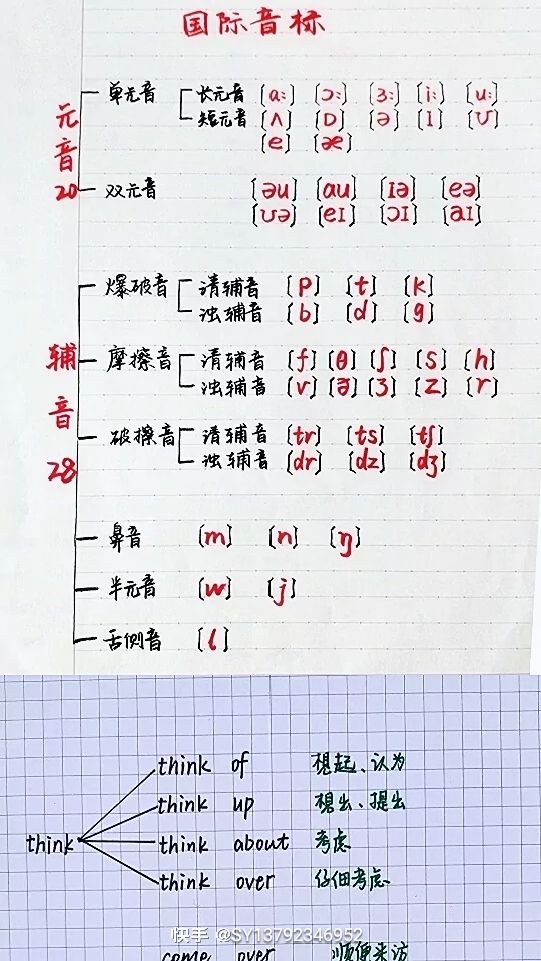 国际音标
元音20
单元音 长元音 [ɑː] [ɔː] [ɜː] [iː] [uː]
短元音 [ʌ] [ɒ] [ə] [ɪ] [ʊ]
[e] [æ]
双元音 [əu] [au] [ɪə] [eə]
[ʊə] [eɪ] [ɔɪ] [aɪ]
辅音28
爆破音 清辅音 [p] [t] [k]
浊辅音 [b] [d] [g]
摩擦音 清辅音 [f] [θ] [ʃ] [s] [h]
浊辅音 [v] [ð] [ʒ] [z] [r]
破擦音 清辅音 [tr] [ts] [tʃ]
浊辅音 [dr] [dz] [dʒ]
鼻音 [m] [n] [ŋ]
半元音 [w] [j]
舌侧音 [l]
think
think of 想起、认为
think up 想出、提出
think about 考虑
think over 仔细考虑
快手 @SY13792346952
come over 顺便来访